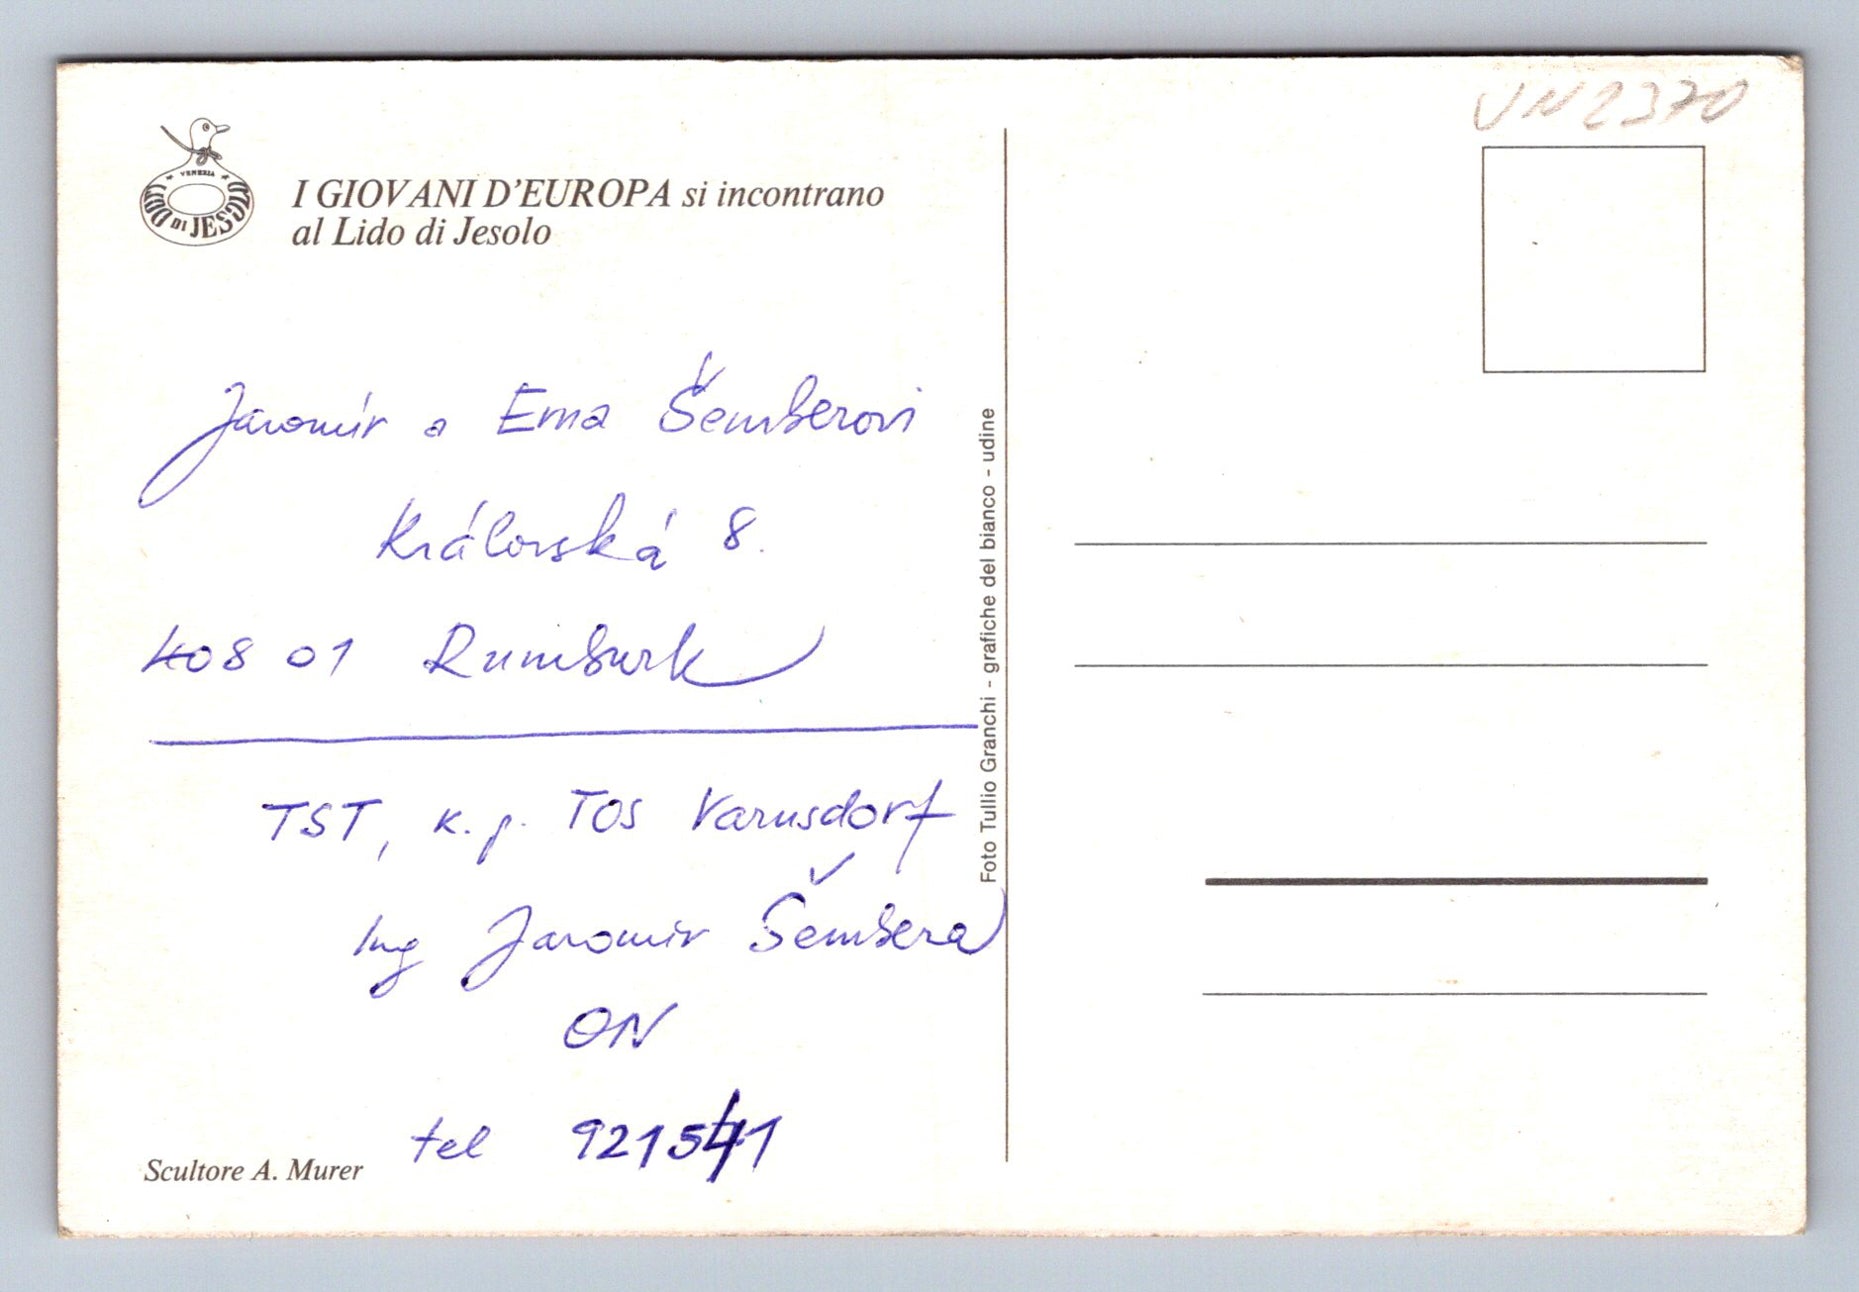 VN2370
VENEZIA
LIDO DI JESOLO
I GIOVANI D'EUROPA si incontrano
al Lido di Jesolo
Jaromír a Ema Šemberovi
Královská 8.
408 01 Rumburk
TST, k.p. TOS Varnsdorf
Ing Jaromír Šembera
ON
tel 921541
Scultore A. Murer
Foto Tullio Granchi - grafiche del bianco - udine